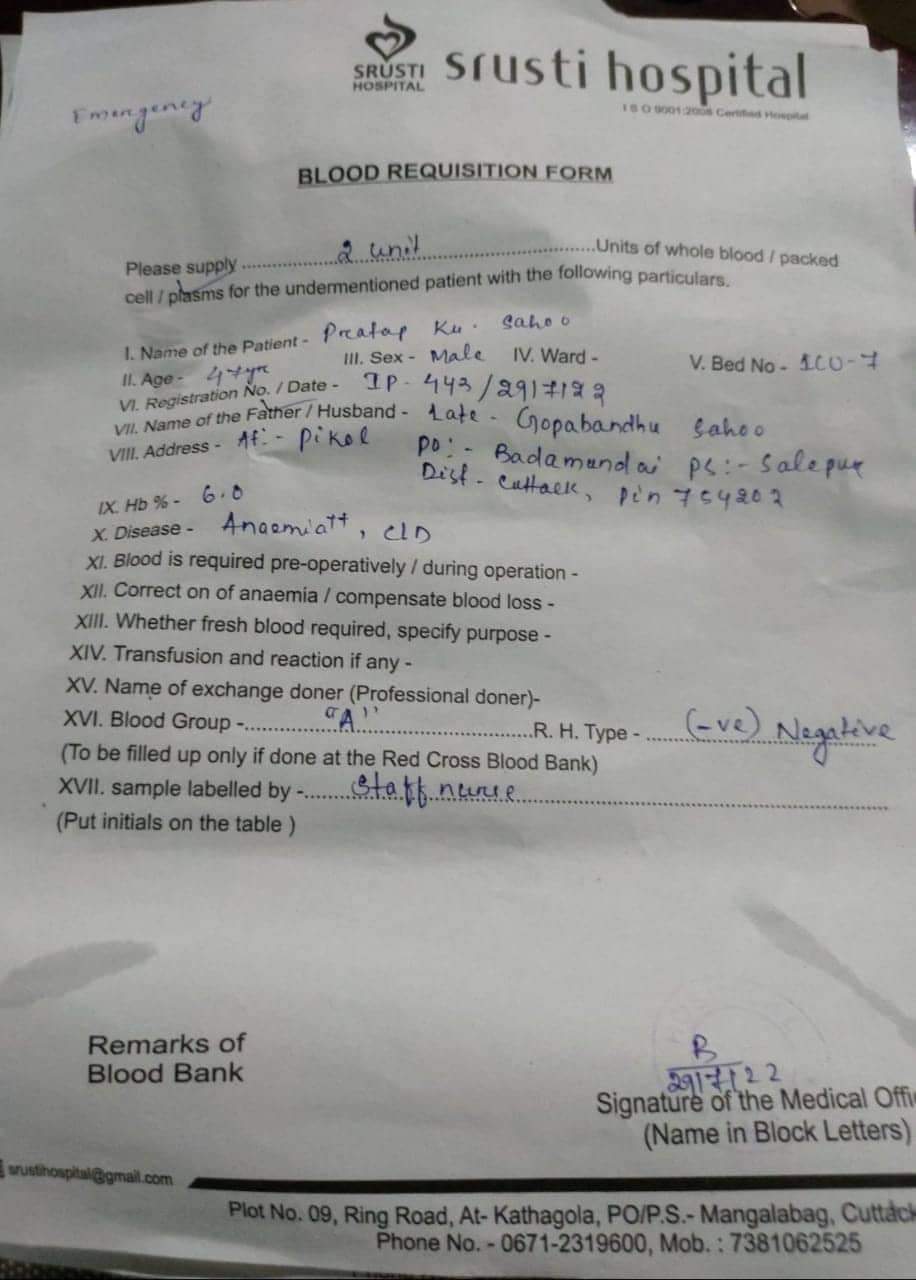 SRUSTI
HOSPITAL
srusti hospital
ISO 9001:2008 Certified Hospital
Emergency
BLOOD REQUISITION FORM
Please supply ........ 2 unit ........ Units of whole blood / packed
cell / plasms for the undermentioned patient with the following particulars.
I. Name of the Patient - Pratap Ku. Sahoo
II. Age - 47yr III. Sex - Male IV. Ward - V. Bed No - ICU-7
VI. Registration No. / Date - IP-443/29/7/22
VII. Name of the Father / Husband - Late - Gopabandhu Sahoo
VIII. Address - At:- Pikol PO:- Badamundai PS:- Salepur
Dist - Cuttack, Pin 754202
IX. Hb % - 6.0
X. Disease - Anaemia++, CLD
XI. Blood is required pre-operatively / during operation -
XII. Correct on of anaemia / compensate blood loss -
XIII. Whether fresh blood required, specify purpose -
XIV. Transfusion and reaction if any -
XV. Name of exchange doner (Professional doner)-
XVI. Blood Group -........ "A" ........ R. H. Type - ........ (-ve) Negative
(To be filled up only if done at the Red Cross Blood Bank)
XVII. sample labelled by -........ Staff nurse ........
(Put initials on the table )
Remarks of
Blood Bank
29/7/22
Signature of the Medical Offi
(Name in Block Letters)
srustihospital@gmail.com
Plot No. 09, Ring Road, At- Kathagola, PO/P.S.- Mangalabag, Cuttack
Phone No. - 0671-2319600, Mob. : 7381062525